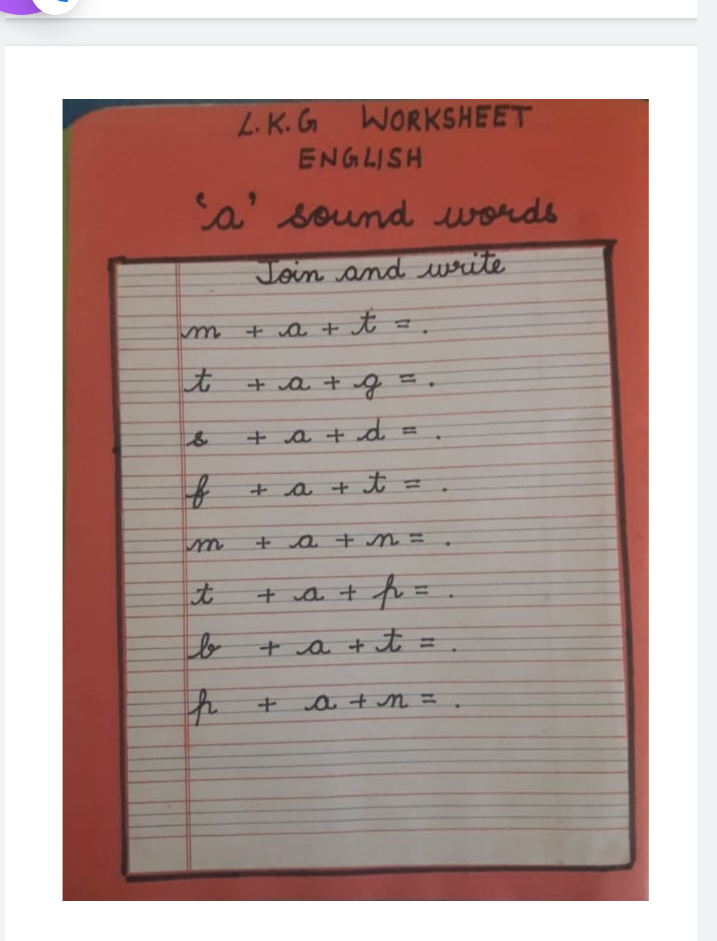 L.K.G WORKSHEET
ENGLISH
'a' sound words
Join and write
m + a + t = .
t + a + g = .
s + a + d = .
f + a + t = .
m + a + n = .
t + a + p = .
b + a + t = .
p + a + n = .